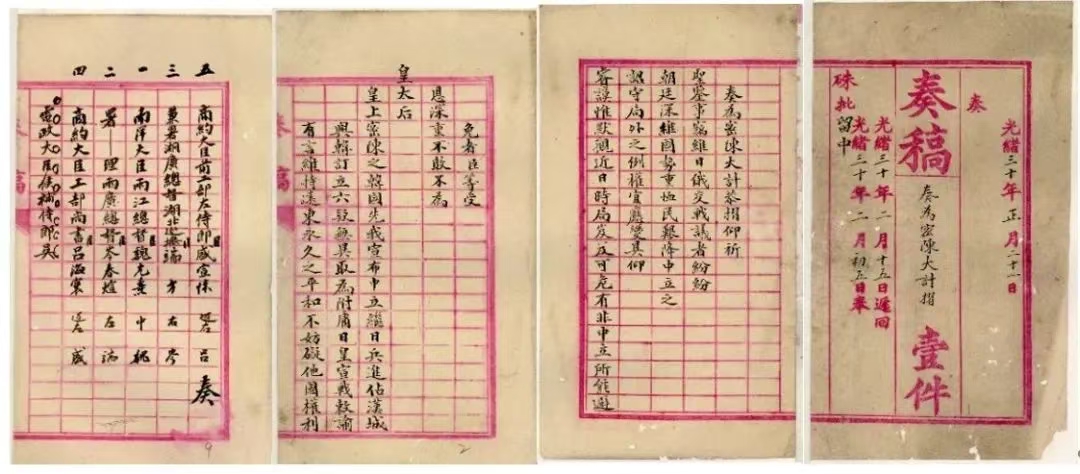 光緒三十年正月二十一日
奏
奏稿
奏為密陳大計摺
壹件
光緒三十年二月十五日遞回
光緒三十年二月初五日奉
硃批
留中
奏為密陳大計恭摺仰祈
聖鑒事竊維日俄交戰議者紛紛
朝廷深維國勢重恤民艱降中立之
詔守局外之例權宜應變具仰
睿謨惟默觀近日時局岌岌可危有非中立所能避
免者臣等受
恩深重不敢不為
皇太后
皇上密陳之韓國先我宣布中立繼日兵進佔漢城
與韓訂立六款無異取為附庸日皇宣戰敕諭
有言維持遠東永久之平和不妨礙他國權利
2
五 商約大臣前工部左侍郎盛宣懷 左 呂 奏
三 兼署湖廣總督湖北巡撫端方 右 岑
一 南洋大臣兩江總督魏光燾 中 魏
二 署理兩廣總督岑春煊 左 端
四 商約大臣工部尚書呂海寰 左 盛
電政大臣候補侍郎吳
9